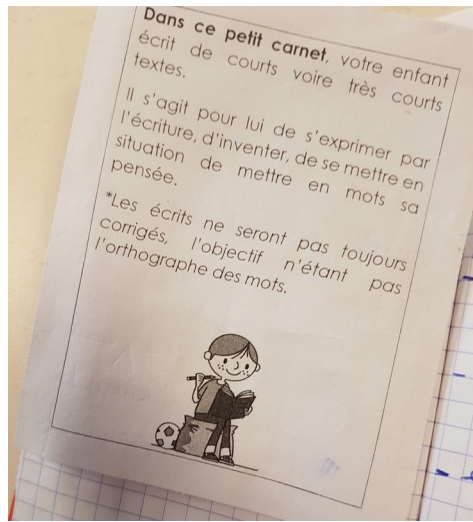 Dans ce petit carnet, votre enfant
écrit de courts voire très courts
textes.
Il s'agit pour lui de s'exprimer par
l'écriture, d'inventer, de se mettre en
situation de mettre en mots sa
pensée.
*Les écrits ne seront pas toujours
corrigés, l'objectif n'étant pas
l'orthographe des mots.